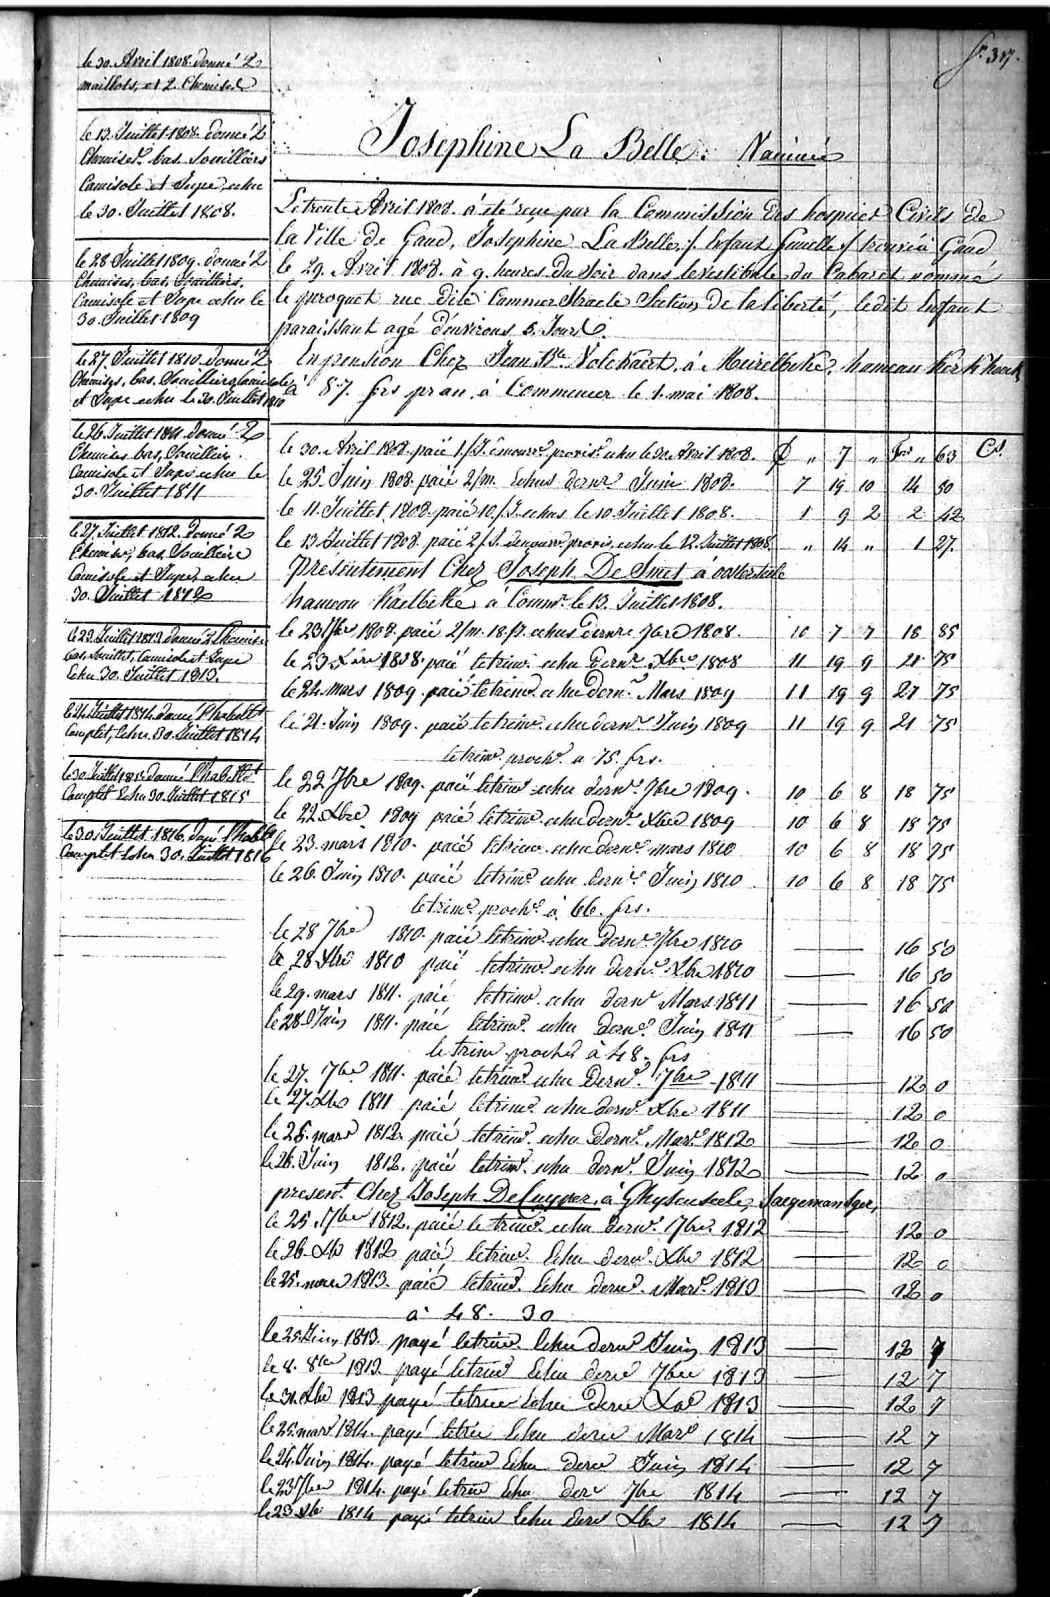 fo. 317.
le 30. Avril 1808. donné 2
maillots, et 2. Chemises
le 13. Juillet 1808. donné 2
Chemises. bas. Souilliers
Camisole et Jupe echu
le 30. Juillet 1808.
le 28 Juillet 1809. donné 2
Chemises, bas. Souilliers,
Camisole et Jupe echu le
30. Juillet 1809
le 27. Juillet 1810. donné 2
Chemises, bas. Souilliers, camisole
et Jupe echu le 30. Juillet 1810
le 26. Juillet 1811. donné 2
Chemises bas, Souilliers.
Camisole et Jupe echu le
30. Juillet 1811
le 27. Juillet 1812. donné 2
Chemises, bas, Souilliers
Camisole et Jupe, echu
30. Juillet 1812
le 23. Juillet 1813. donné 2 Chemises
bas, Souilliers, Camisole et Jupe
Echu 30. Juillet 1813.
le 24. Juillet 1814. donné l'habillt
Complet, Echu 30. Juillet 1814
le 30. Juillet 1815. donné l'habillt
Complet Echu 30. Juillet 1815
le 30. Juillet 1816. donné l'habillt
Complet Echu 30. Juillet 1816
Josephine La Belle. Vaccinée
Le trente Avril 1808. à été reçu par la Commission des hospices Civils de
la Ville de Gand, Josephine La Belle, /. Enfant femelle ./ trouvé à Gand
le 29. Avril 1808. à 9. heures. du Soir dans le vestibule du Cabaret nommé
le peroquet rue dite Cammerstraete Section de la liberté, ledit Enfant
paraissant agé d'environs 5. Jours.
En pension Chez Jean Bte. Volckaert, à Meirelbeke, hameau Kerkhoeck
à 87. frs pr an. à Commencer le 1. mai 1808.
le 30. Avril 1808. paié 1./J. . provis. echu le 30. Avril 1808. £ " 7 " frs " 63 Cs.
le 25. Juin 1808. paié 2/m. Echus dernr. Juin 1808. 7 19 10 14 50
le 11. Juillet 1808. paié 10./J. echus le 10. Juillet 1808. 1 9 2 2 42
le 13. Juillet 1808. paié 2/J. provis. echu le 12. Juillet 1808. " 14 " 1 27.
Présentement Chez Joseph De Smet à oosterzeele
hameau à Commr. le 13. Juillet 1808.
le 23 7bre 1808. paié 2/m. 18./J. echus dernre 7bre 1808. 10 7 7 18 85
le 23 Xbre 1808. paié le trimr. echu dernr. Xbre 1808 11 19 9 21 75
le 24. mars 1809. paié le trimr. echu dernr. Mars 1809 11 19 9 21 75
le 21. Juin 1809. paié le trimr. echu dernr. Juin 1809 11 19 9 21 75
le trimr. prochr. a 75. frs.
le 22 7bre 1809. paié le trimr. echu dernr. 7bre 1809. 10 6 8 18 75
le 22. Xbre 1809 paié le trimr. echu dernr. Xbre 1809 10 6 8 18 75
le 23. mars 1810. paié le trimr. echu dernr. mars 1810 10 6 8 18 75
le 26. Juin 1810. paié le trimr. echu dernr. Juin 1810. 10 6 8 18 75
le trimr. prochr. à 66. frs.
le 28 7bre 1810. paié le trimr. echu dernr. 7bre 1810 16 50
le 28 Xbre 1810 paié le trimr. echu dernr. Xbre 1810 16 50
le 29. mars 1811. paié le trimr. echu dernr Mars 1811 16 50
le 28. Juin 1811. paié le trimr. echu dernr. Juin 1811 16 50
le trimr prochr à 48. frs
le 27. 7bre. 1811. paié le trimr. echu dernr. 7bre 1811 12 0
le 27. Xbre 1811 paié le trimr. echu dernr. Xbre 1811 12 0
le 25. mars 1812. paié le trimr. echu dernr. Mars. 1812 12 0
le 26. Juin 1812. paié le trimr. echu dernr. Juin 1812 12 0
present. Chez Joseph De Cuyper. à Ghysenzeele,
le 25. 7bre 1812. paié le trimr. echu dernr. 7bre. 1812 12 0
le 26. Xbre 1812 paié le trimr. Echu dernr. Xbre 1812 12 0
le 25. mars 1813. paié le trimr. Echu dernr. Mars. 1813 12 0
à 48. 30
le 25. Juin 1813. payé le trimr. Echu dernr Juin 1813 12 7
le 8. 8bre 1813. payé le trimr Echu dernr 7bre 1813 12 7
le 31. Xbre 1813 payé le trimr Echu dernr Xbre 1813 12 7
le 25. mars 1814. payé le trimr Echu dernr Mars 1814 12 7
le 24. Juin 1814. payé le trimr Echu dernr Juin 1814 12 7
le 23 7bre 1814. payé le trimr Echu dernr 7bre 1814 12 7
le 23 Xbre 1814 payé le trimr Echu dernr Xbre 1814 12 7